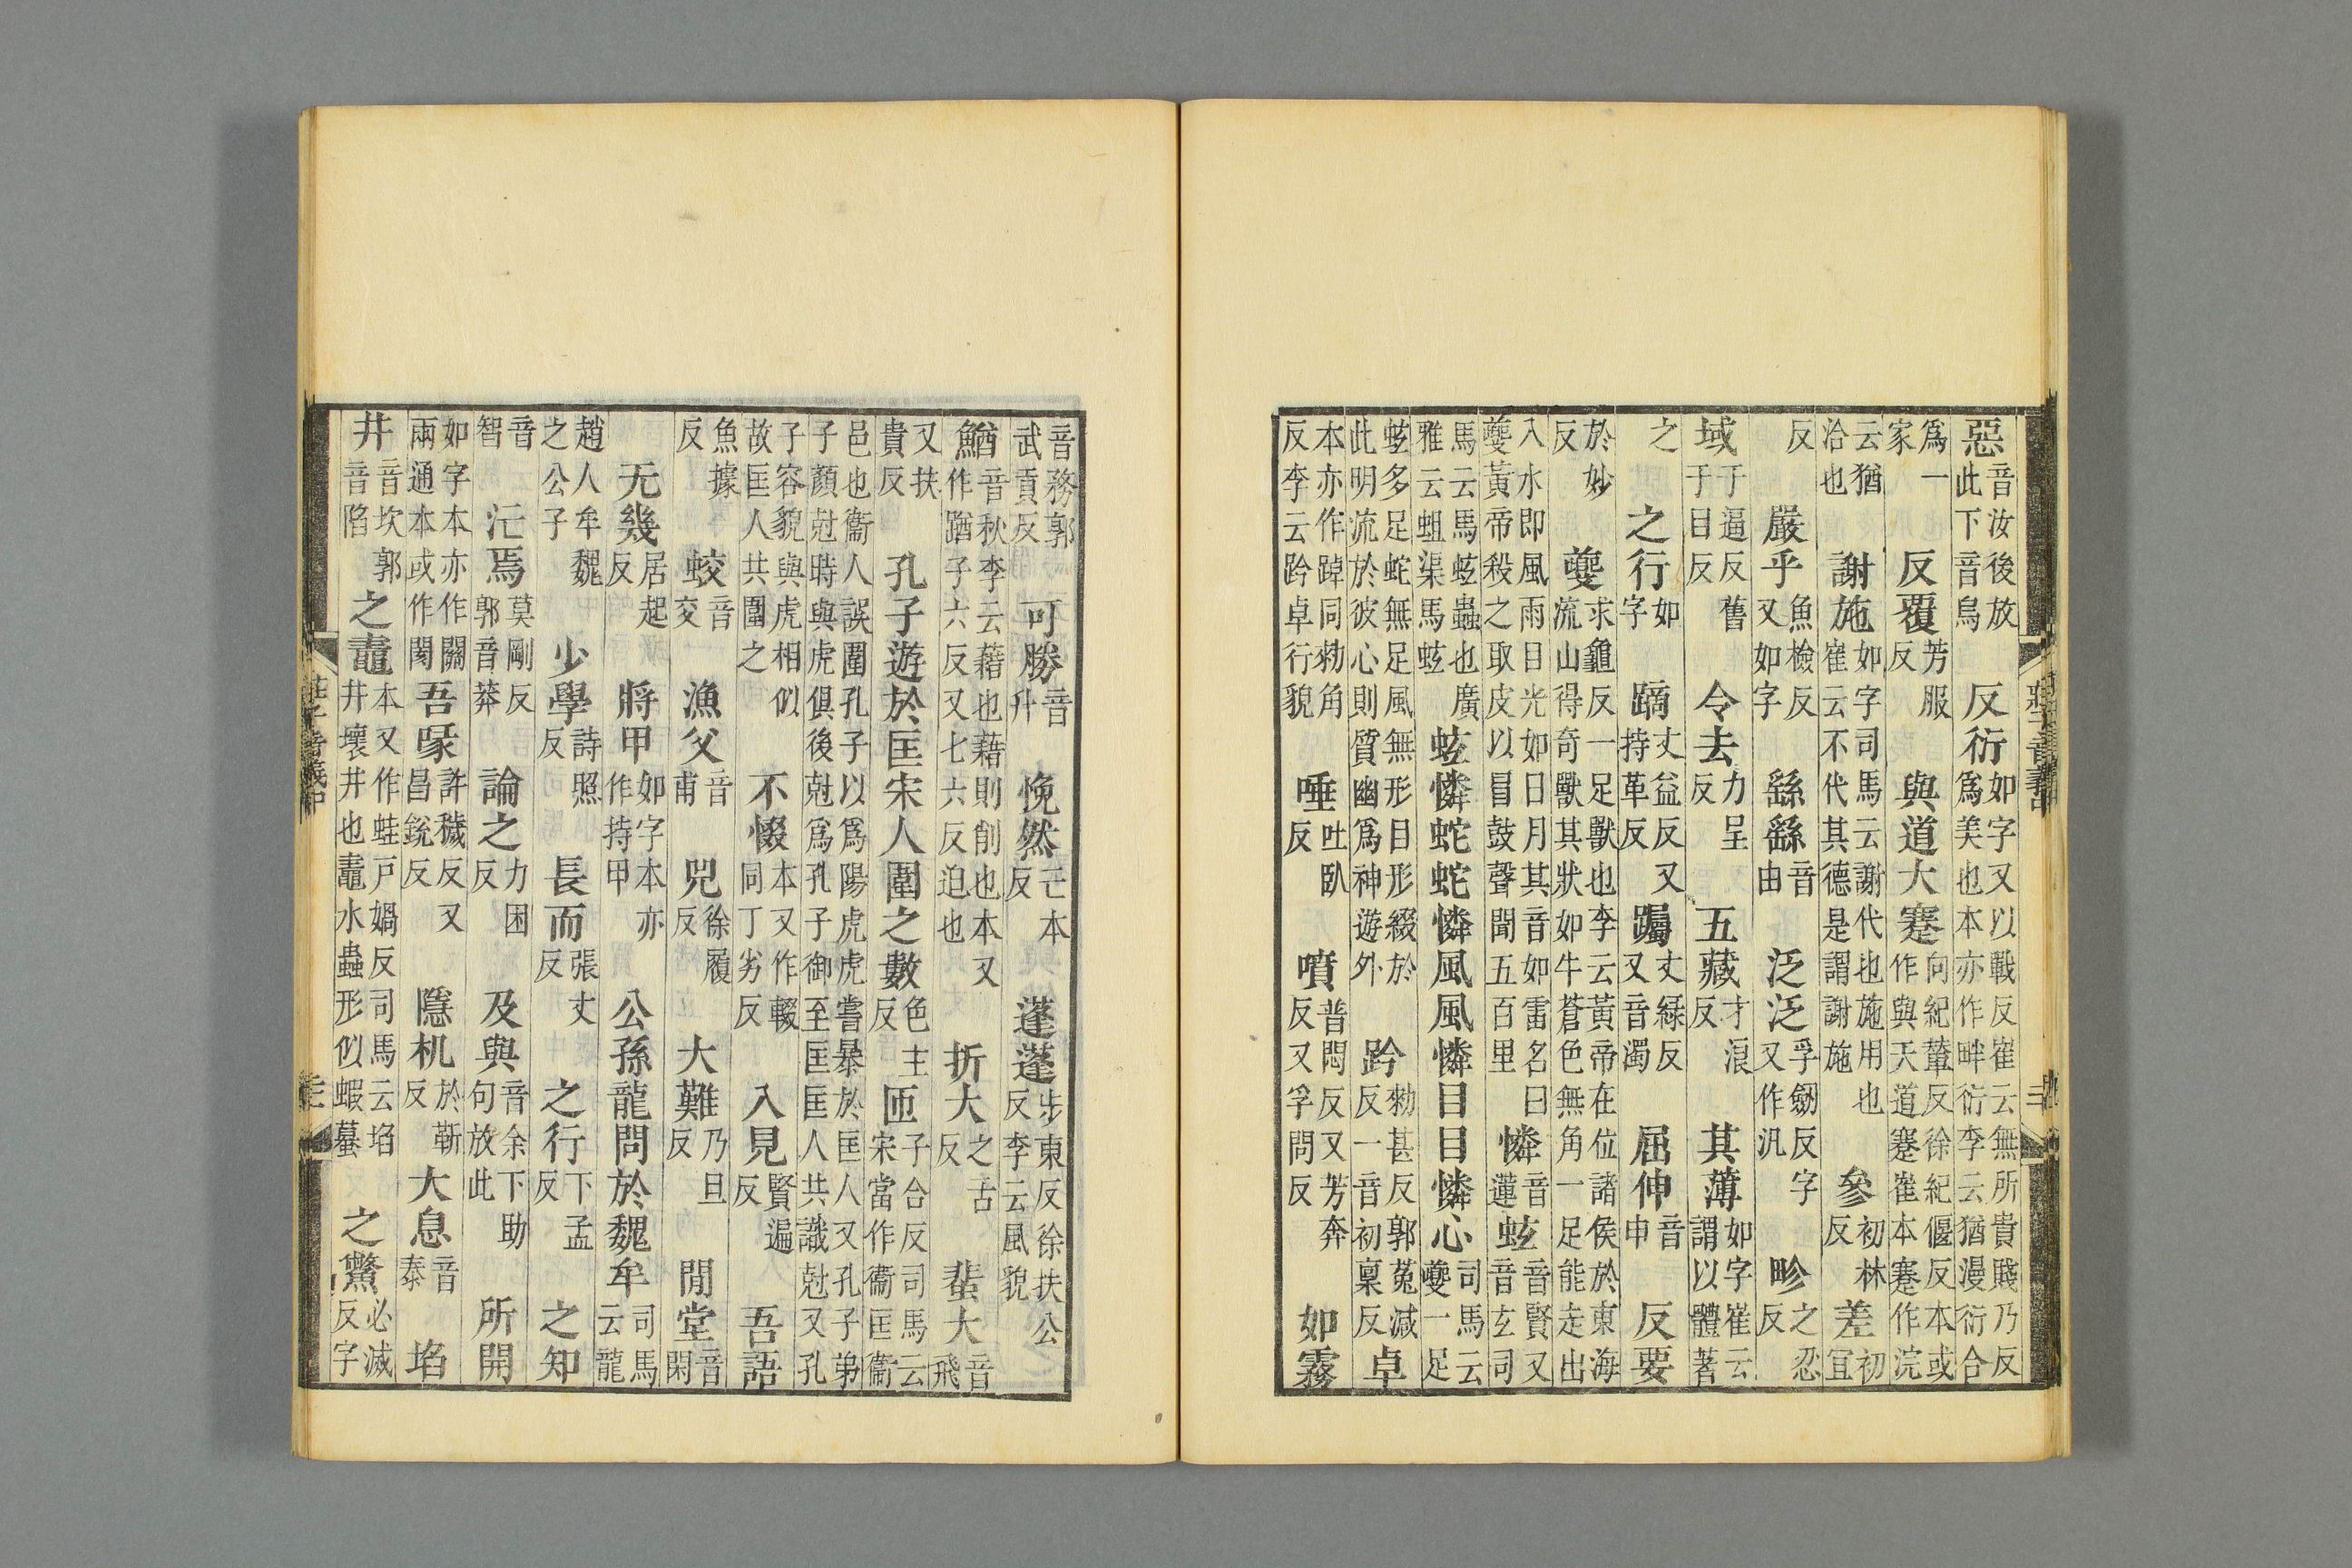 惡音汝後放此下音烏 反衍如字又以戰反崔云無所貴賤乃反爲美也本亦作畔衍李云猶漫衍合
爲一家 反覆芳服反 與道大蹇向紀輦反徐紀偃反本或作與天道蹇崔本蹇作浣
云猶洽也 謝施如字司馬云謝代也施用也崔云不代其德是謂謝施 參初林反 差初宜
反 嚴乎魚檢反又如字 繇繇音由 泛泛孚劒反字又作汎 畛之忍反
域于逼反舊于目反 令去力呈反 五藏才浪反 其薄如字崔云謂以體著
之 之行如字 蹢丈益反又持革反 躅丈綠反又音濁 屈伸音申 反要
於妙反 夔求龜反一足獸也李云黃帝在位諸侯於東海流山得奇獸其狀如牛蒼色無角一足能走出
入水即風雨目光如日月其音如雷名曰夔黃帝殺之取皮以冒鼓聲聞五百里 憐音蓮 蚿音賢又音玄司
馬云馬蚿蟲也廣雅云蛆渠馬蚿 蚿憐蛇蛇憐風風憐目目憐心司馬云夔一足
蚿多足蛇無足風無形目形綴於此明流於彼心則質幽爲神遊外 跉勑甚反郭菟減反一音初稟反 卓
本亦作踔同勑角反李云跉卓行貌 唾吐臥反 噴普悶反又芳奔反又孚問反 如霧
音務郭武貢反 可勝音升 悗然亡本反 蓬蓬步東反徐扶公反李云風貌
鰌音秋李云藉也藉則削也本又作蹵子六反又七六反迫也 折大之舌反 蜚大音飛
又扶貴反 孔子遊於匡宋人圍之數色主反 匝子合反司馬云宋當作衞匡衞
邑也衞人誤圍孔子以爲陽虎虎嘗暴於匡人又孔子弟子顏尅時與虎俱後尅爲孔子御至匡匡人共識尅又孔
子容貌與虎相似故匡人共圍之 不惙本又作輟同丁劣反 入見賢遍反 吾語
魚據反 蛟音交 漁父音甫 兕徐履反 大難乃旦反 閒堂音閑
无幾居起反 將甲如字本亦作持甲 公孫龍問於魏牟司馬云龍
趙人牟魏之公子 少學詩照反 長而張丈反 之行下孟反 之知
音智 汒焉莫剛反郭音莽 論之力困反 及與音余下助句放此 所開
如字本亦作關兩通本或作閡 吾喙許穢反又昌銳反 隱机於靳反 大息音泰 埳
井音坎郭音陷 之鼃本又作蛙戶媧反司馬云埳井壞井也鼃水蟲形似蝦蟇 之鱉必滅反字
莊子音義中